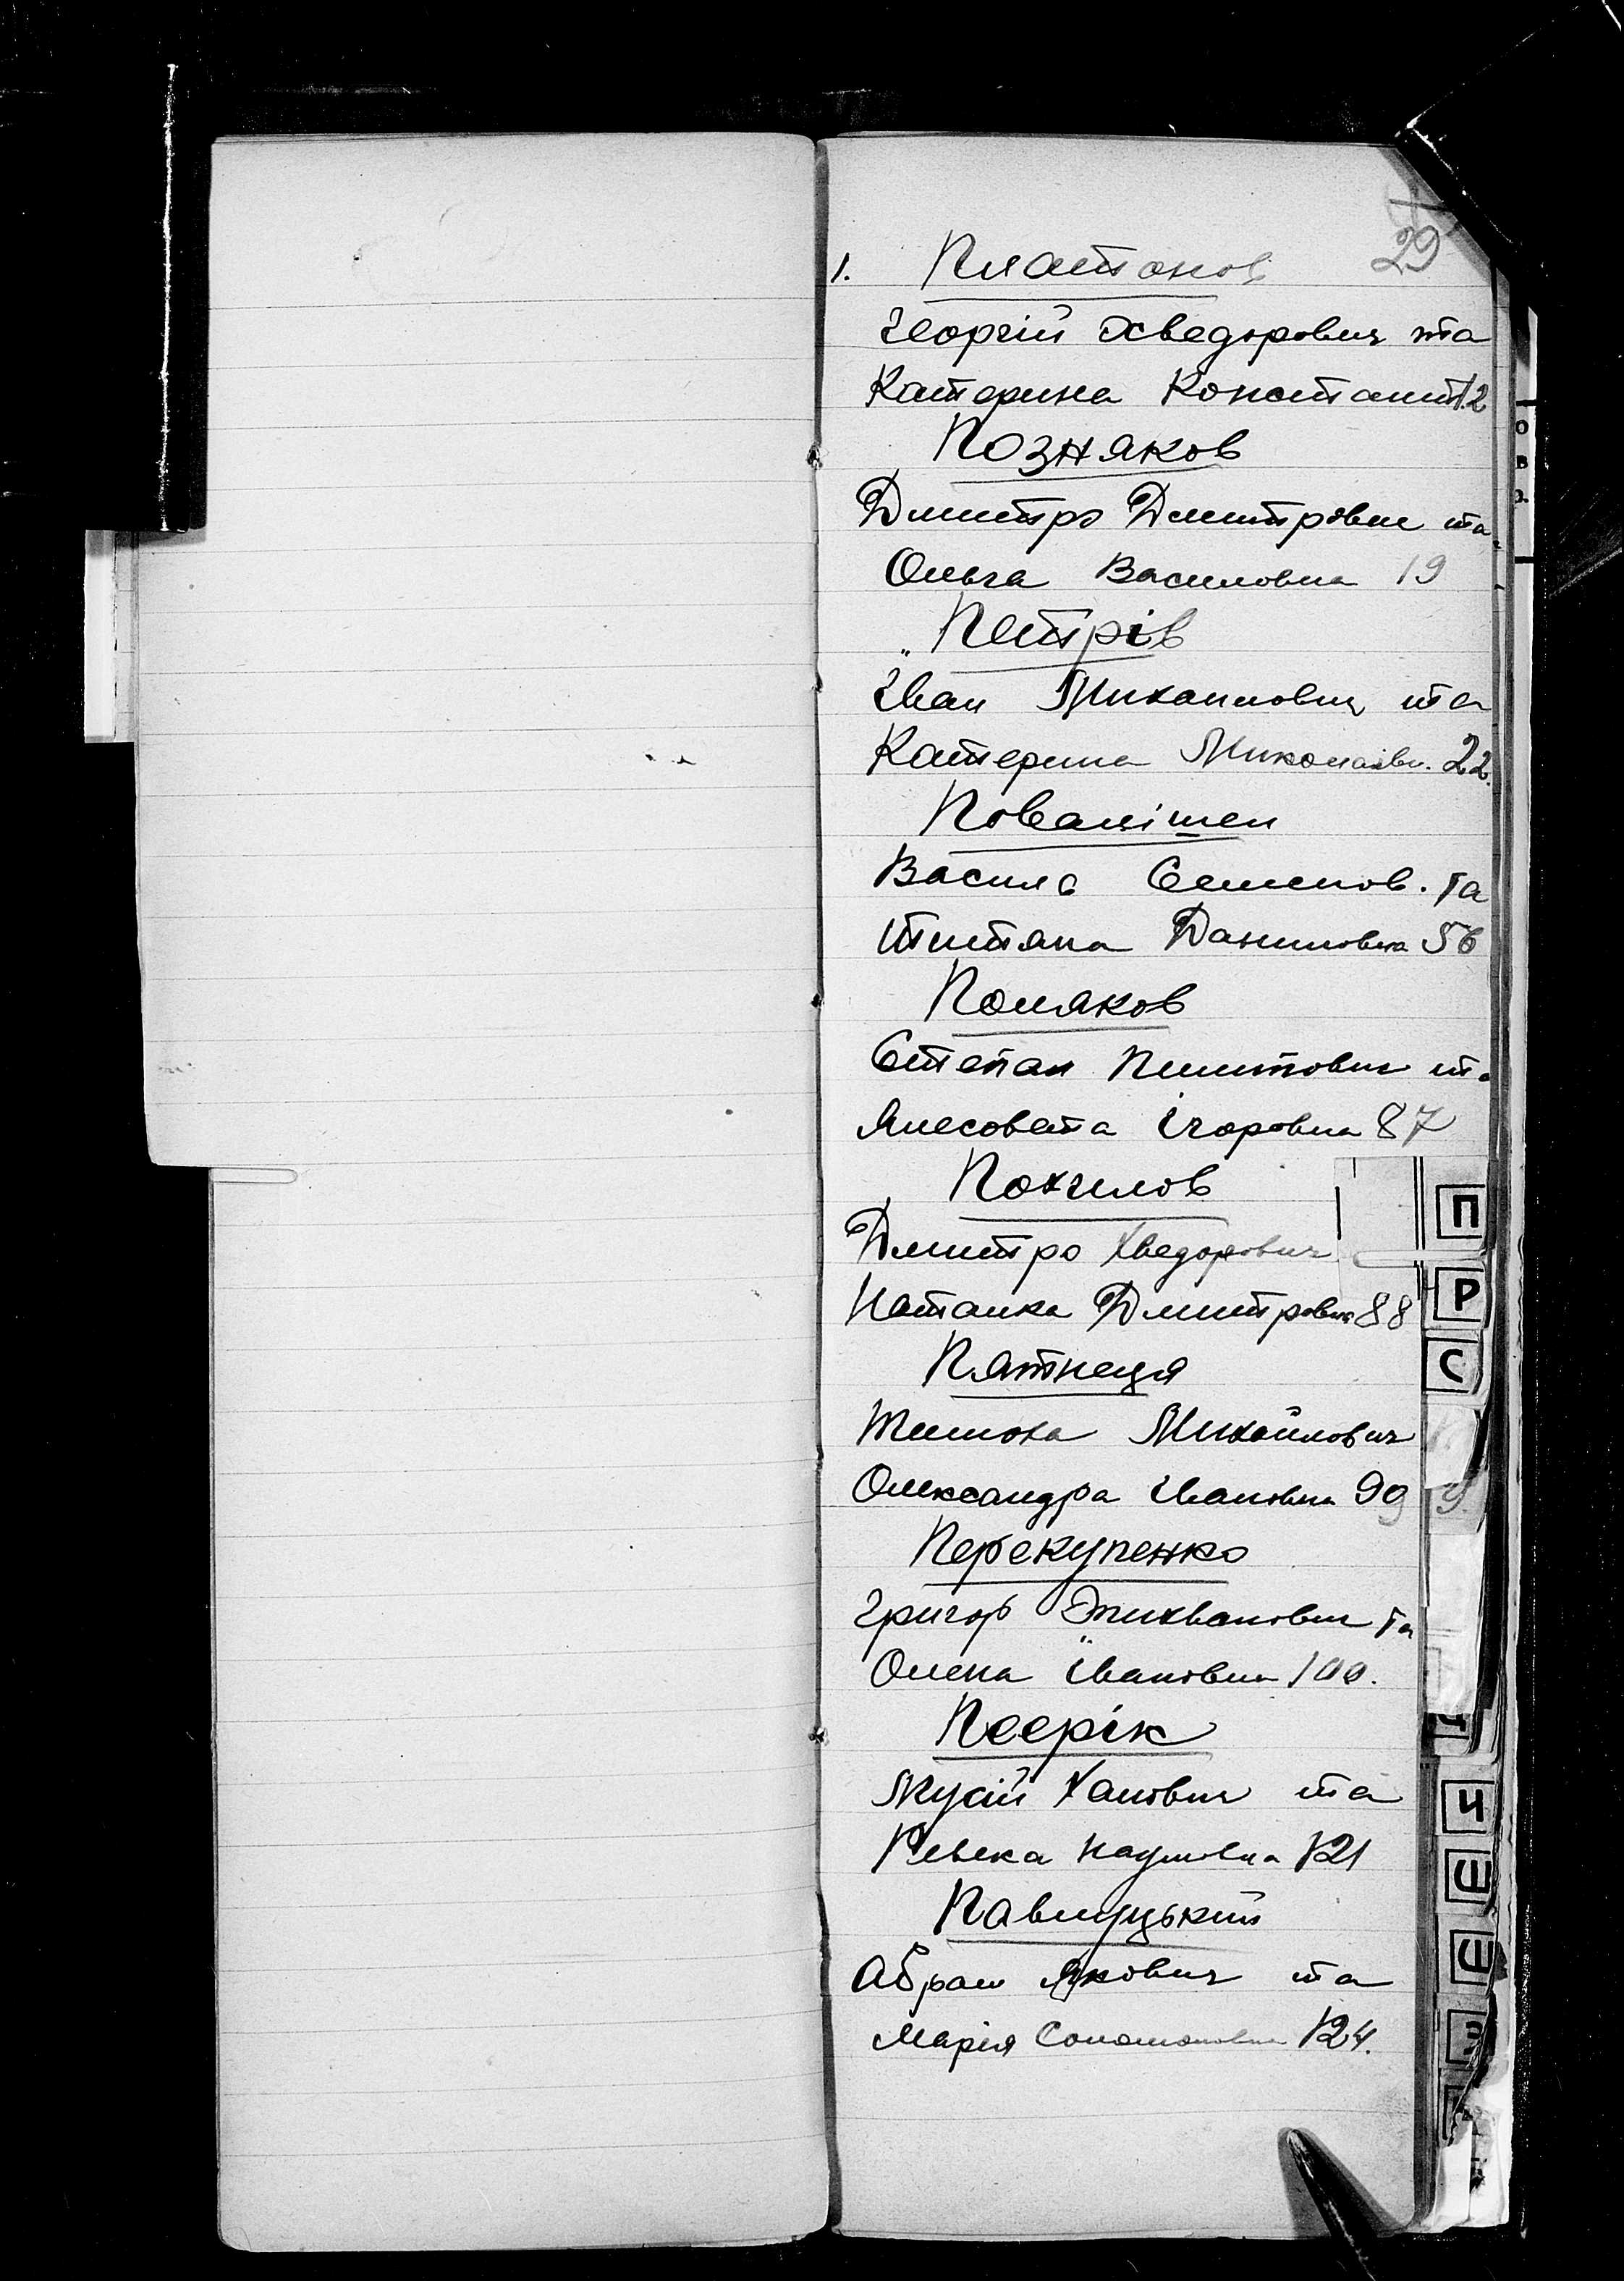 29
1. Платонов
Георгій Хведорович та
Катерина Констант 12
Позняков
Дмитро Дмитрович та
Ольга Василовна 19
„ Петрів
Іван Михайлович та
Катерина Миколаївн. 22.
Василь Семенов. та
Титяна Даниловна 56
Поляков
Степан та
Ягоровна 87
Похилов
Дмитро Хведорович
Наталка Дмитровна 88
Пятнеця
Тимоха Михайлович
Олександра Івановна 99
Перекупенко
Григор Епихванович та
Олена Івановна 100.
Псерік
та
Ревека Наумовна 121
Павлуцький
Абрам Якович та
Марія Соломоновна 124.
П
Р
С
Ч
Ш
Щ
Э